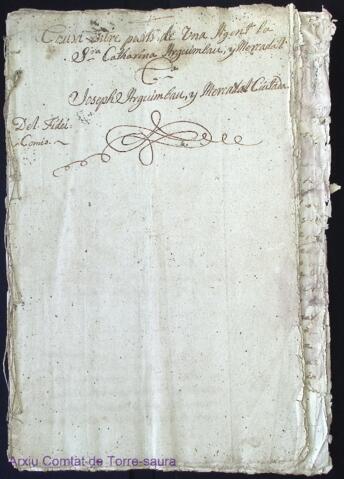 entre parts de Una Agent la
Sra Catharina Arguimbau, y Mercadal
Ca
Joseph Arguimbau, y Mercadal Ciutada
Del Fidei-
Comis.~
Arxiu Comtat de Torre-saura